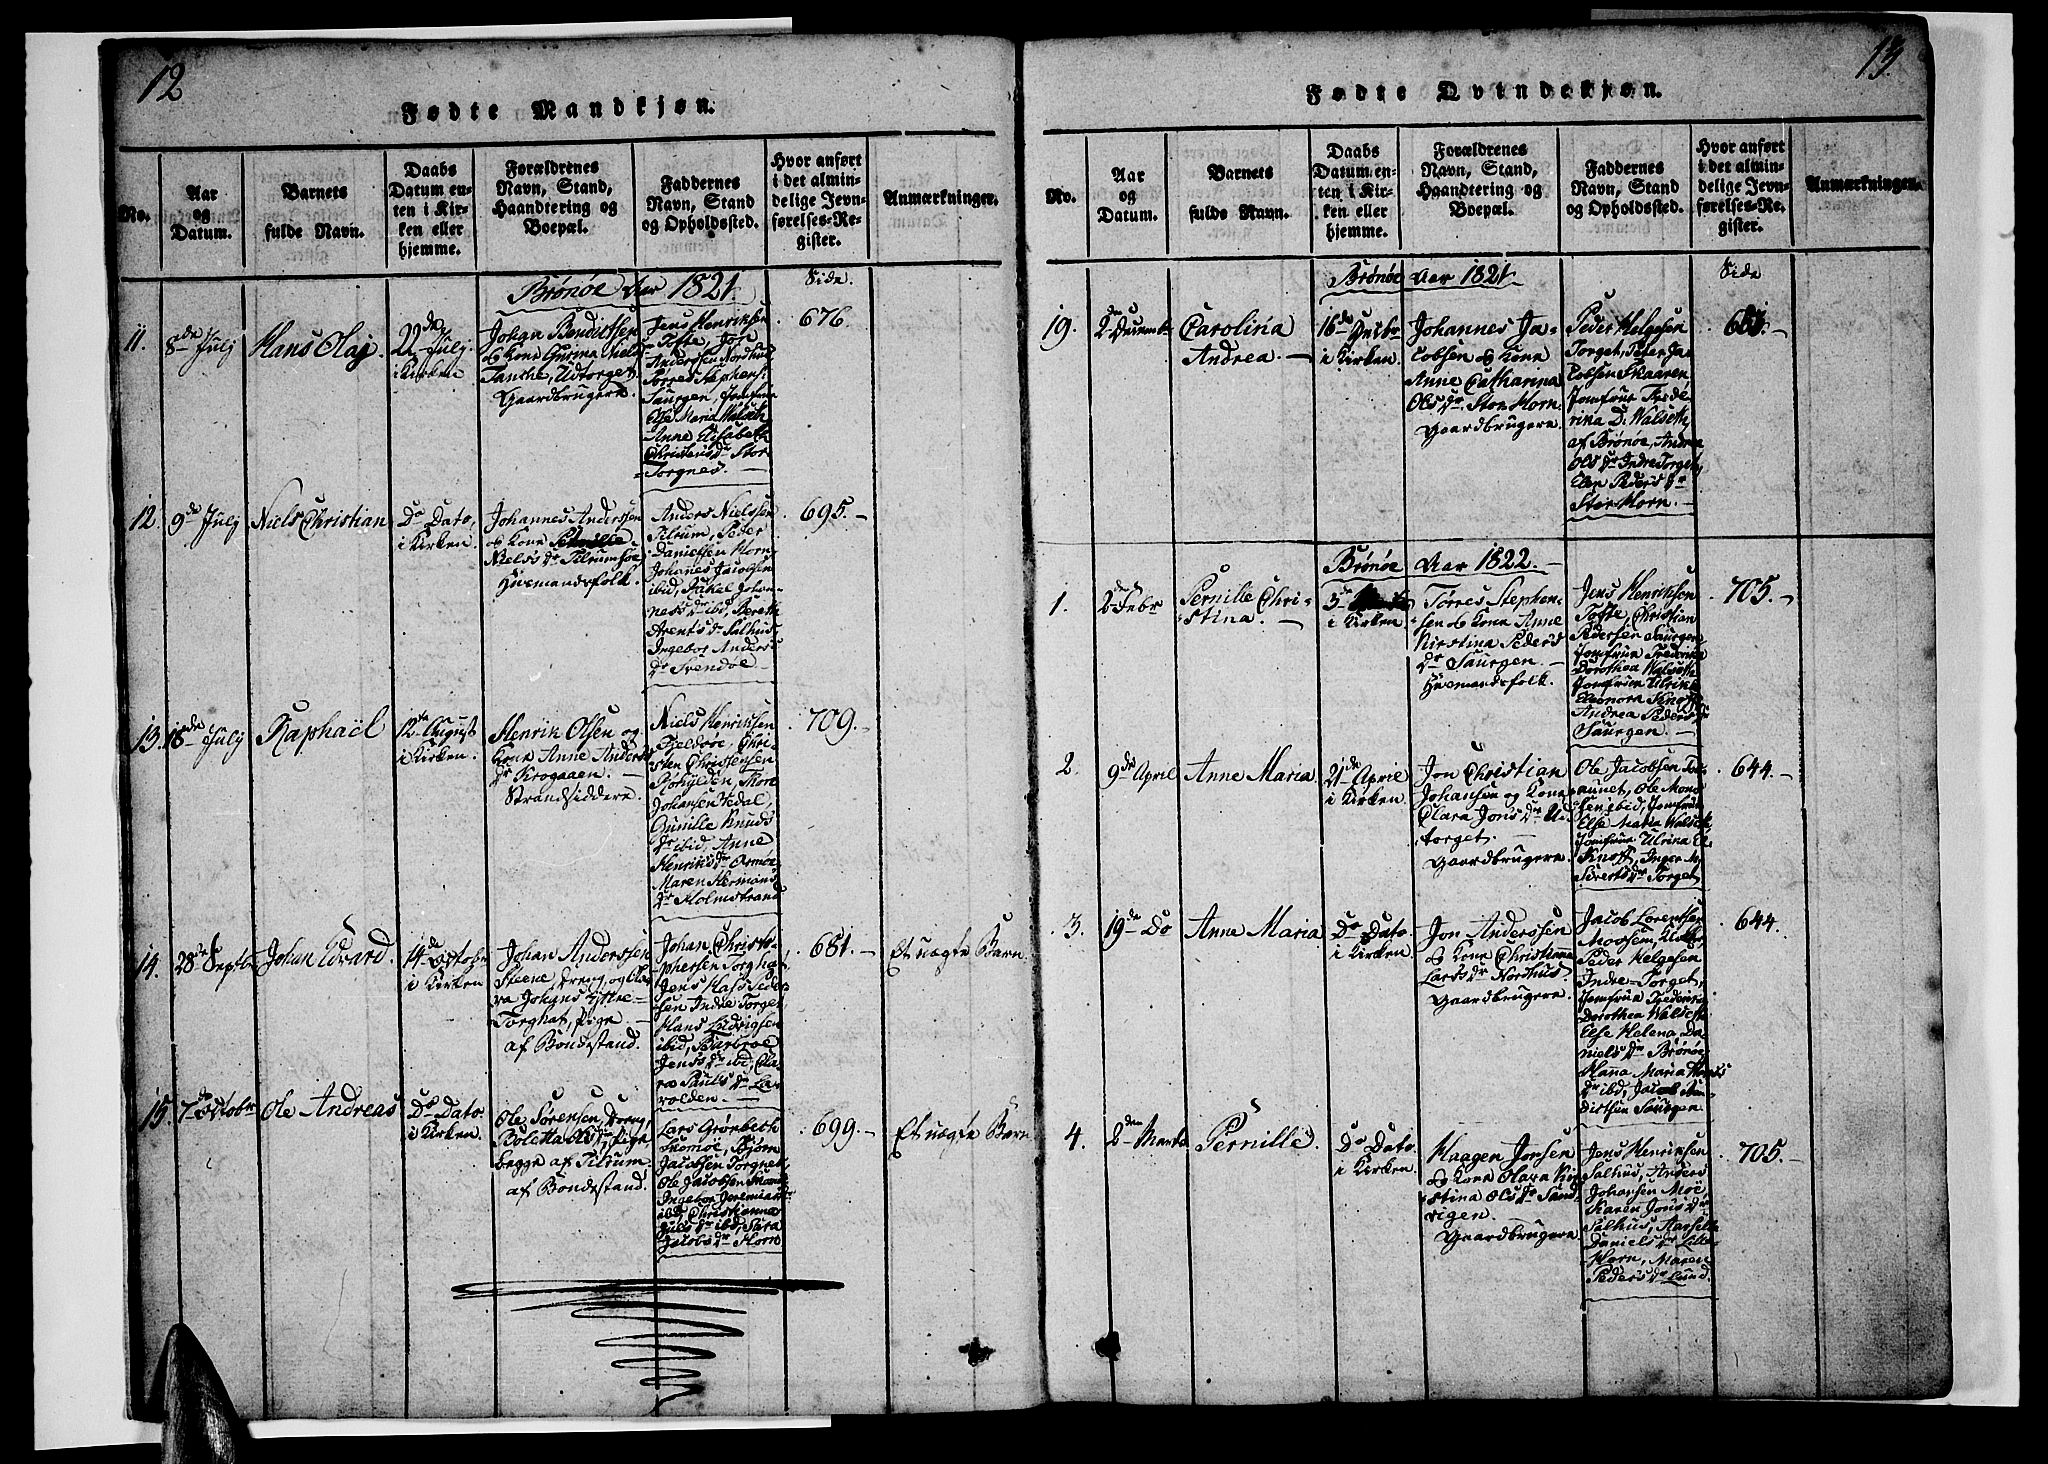 12
Fødte Mandkjøn.
No.
Aar
og
Datum.
Barnets
fulde Navn.
Daabs
Datum en-
ten i Kir-
ken eller
hjemme.
Forældrenes
Navn, Stand,
Haandtering og
Boepæl.
Faddernes
Navn, Stand
og Opholdssted.
Hvor anført
i det almin-
delige Jevn-
førelses-Re-
gister.
Anmærkninger.
Brønøe Aar 1821.
Side.
11.
8de Julj
Hans Olaj.
22de Julj.
i Kirken
Johan Bendixtsen
og Kone Gurina Niels
Tanche, Udtorget
Gaardbrugere.
Jens Henriksen
Tofte, Jon
Anderssen Nordhus
Torres Stephens.
Saurgen, Jomfrue
Else Maria Walseth
Anne Elisabeth
Christens Dr Stor
Torgnes.
676
12.
9de Julj
Niels Christian
Do Dato,
i Kirken.
Johannes Anderssen
og Kone
Niels Dr Tilrumsøe
Huusmandsfolk.
Anders Nielssen
Tilrum, Peder
Danielsen Horn
Johanes Jacobsen
ibid, Rakel Johan-
nes Dr ibid, Bereth
Arents Dr Salhus
Ingebor Anders
Dr Svendøe
695.
13.
18de Julj
Raphaël
12te August
i Kirken.
Henrik Olsen og
Kone Anne Anders
Dr Krogaaen.
Strandsiddere.
Niels Henriksen
Fieldøe, Chri-
sten Christensen
Rohylden, Thore
Johansen Hedal,
Gunille Knuds
Dr ibid, Anne
Henriks Dr Ormøe
Maren Hermans
Dr Holmstrand
709.
14.
28de Septbr
Johan Edvard.
14de Octobr
i Kirken
Johan Anderssen
Steene, Dreng, og Cla-
ra Johans Yttre-
Torghat, Pige
af Bondestand.
Johan Christo-
phersen Torghat
Jens Hass Peder
sen Indre Torget
Hans Ludvigsen
ibid, Barbroe
Jens Dr ibid, Cla-
ra Pauls Dr La-
volden.
681.
Et uægte Barn.
15.
7de Octobr
Ole Andreas
Do Dato.
i Kirken.
Ole Sørensen, Dreng,
Boletta Ols Dr Pige
begge af Tilrum.
af Bondestand.
Lars Grønbech
Tromøe, Bjørn
Jacobsen Torgnet,
Ole Jacobsen
Ingebor Jeremias Dr
ibid, Christianna
Juls Dr ibid, Sara
Jacobs Dr Horn
699.
Et uægte Barn
13.
Fødte Qvindekjøn.
No.
Aar
og
Datum.
Barnets
fulde Navn.
Daabs
Datum en-
ten i Kir-
ken eller
hjemme.
Forældrenes
Navn, Stand,
Haandtering og
Boepæl.
Faddernes
Navn, Stand
og Opholdssted.
Hvor anført
i det almin-
delige Jevn-
førelses-Re-
gister.
Anmærkninger.
Brønøe Aar 1821.
Side
19.
2den Decembr
Carolina
Andrea.
16de Decbr
i Kirken.
Johannes Ja-
cobsen og Kone
Anne Catharina
Ols Dr. Stor Horn.
Gaardbrugere.
Peder Helgesen
Torget, Peter Ja-
cobsen Skaaren,
Jomfrue Frede-
rina D. Walseth,
af Brønøe, Andrea
Ols Dr Indre Torget,
Elen Peders Dr
Stor Horn.
Brønøe Aar 1822.
1.
2den Febr
Pernille Chri-
stina.
3de
i Kirken
Torres Stephen-
sen og Kone Anne
Kirstina Peders
Dr Saurgen.
Huusmandsfolk.
Jens Henriksen
Tofte, Christian
Pedersen Saurgen
Jomfrue Frederina
Dorothea Walseth
Jomfrue Ulrikke
Eleonora Knoff
Andrea Peders Dr
Saurgen.
705.
2.
9de April
Anne Maria
21de April
i Kirken.
Jon Christian
Johansen og Kone
Clara Jons Dr Ud-
torget.
Gaardbrugere.
Ole Jacobsen
ibid, Jomfrue
Else Maria Walseth,
Jomfrue Ulrina El.
Knoff, Inger M.
Siverts Dr Torget.
644.
3.
19de Do
Anne Maria
Do Dato
i Kirken.
Jon Anderssen
og Kone Christianne
Lars Dr Nordhus
Gaardbrugere.
Jacob Lorentsen
Moosem, Klokker,
Peder Helgesen
Indre-Torget,
Jomfrue Frederina
Dorothea Walseth
Else Helena Da-
niels Dr Brønøe
Hana Maria
Dr ibid, Jacob Ben-
dixtsen Saurgen
644.
4.
2den Martz
Pernille.
Do Dato.
i Kirken.
Haagen Jonsen
og Kone Olava Kir-
stina Ols Dr Sand-
vigen.
Gaardbrugere.
Jens Henriksen
Salhus, Anders
Johansen Moe,
Karen Jons Dr
Salhus,
Daniels Dr Lille-
Horn, Maren
Peders Dr Lund.
705.